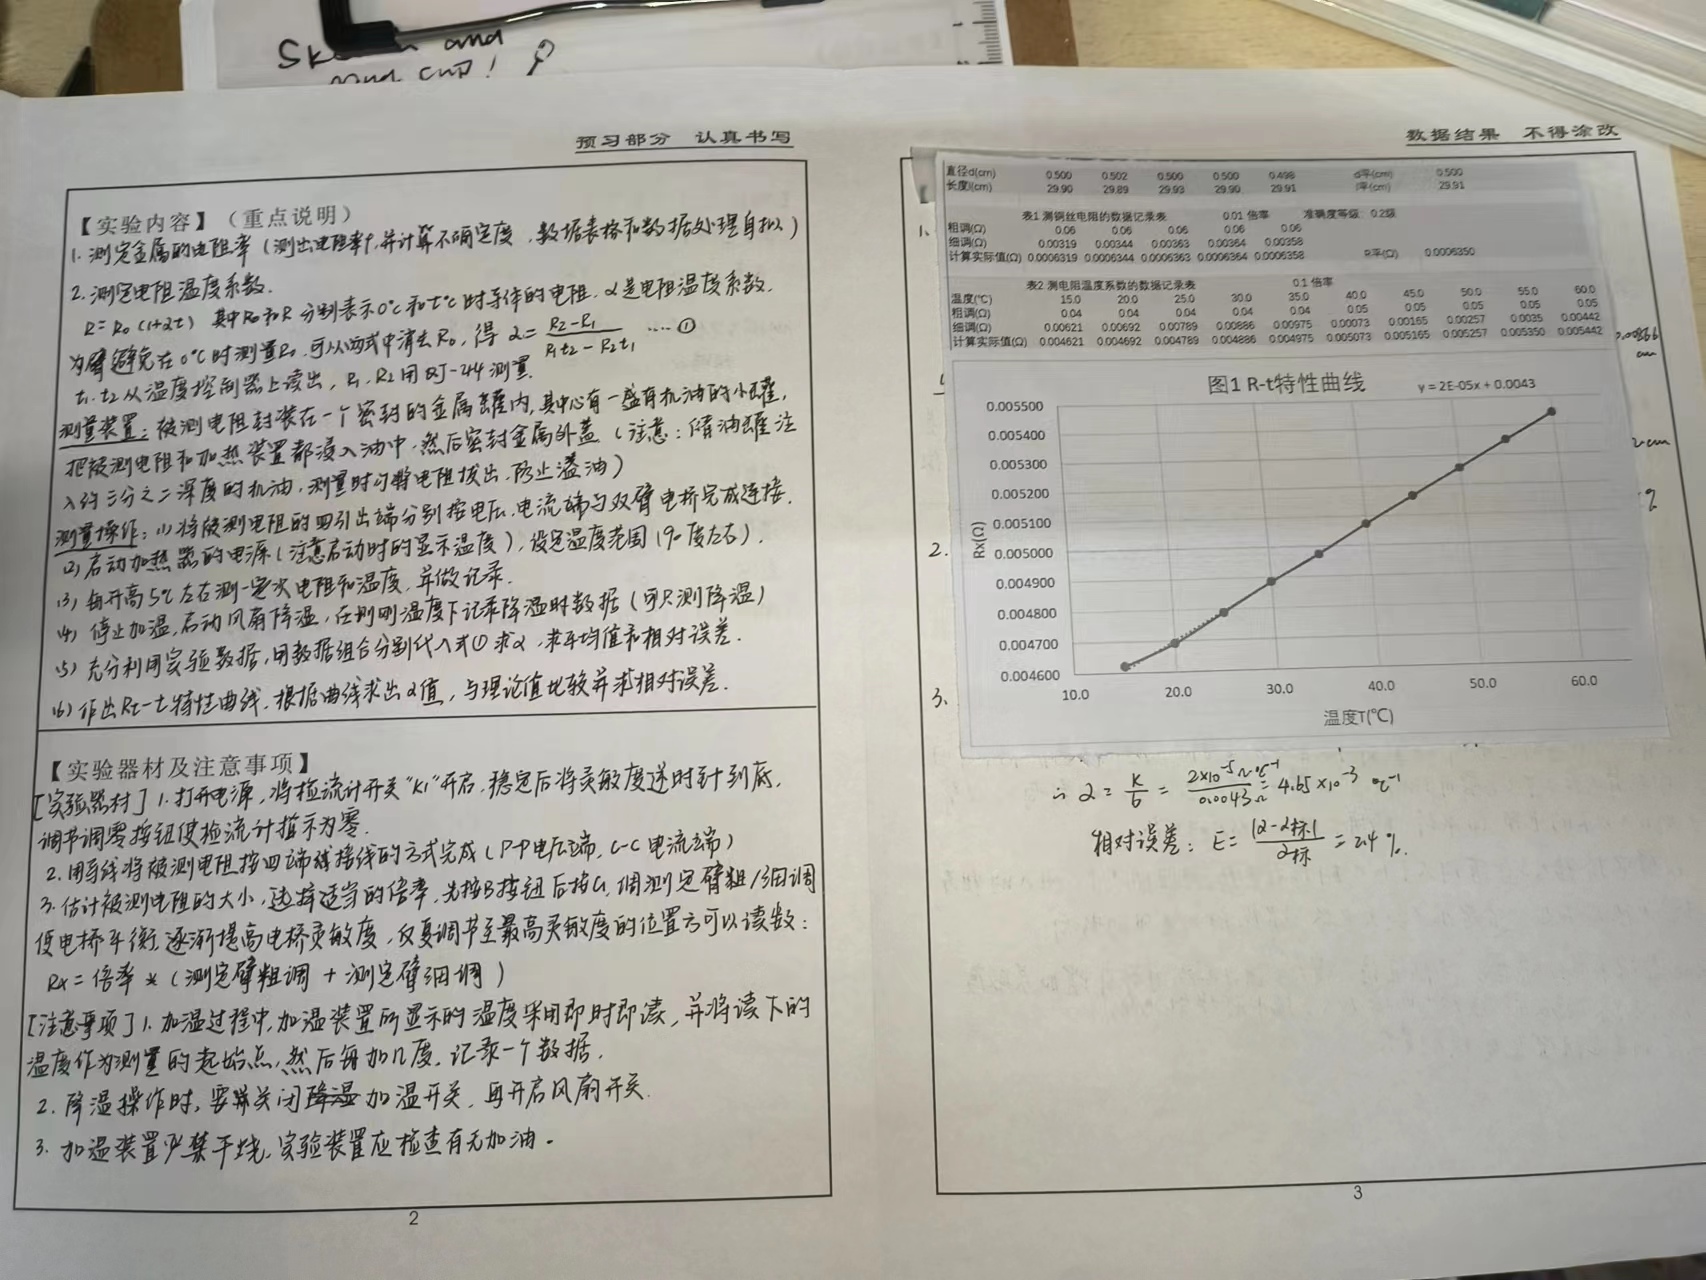 Sk and
and cup!
预习部分 认真书写
【实验内容】（重点说明）
1. 测定金属的电阻率（测出电阻率ρ,并计算不确定度，数据表格和数据处理自拟）
2. 测定电阻温度系数.
R=R₀(1+αt) 其中R₀和R分别表示0℃和t℃时导体的电阻，α是电阻温度系数.
避免在0℃时测量R₀,可以两式中消去R₀，得 α= (R₂-R₁)/(R₁t₂-R₂t₁) ……①
t₁、t₂从温度控制器上读出，R₁、R₂用QJ-44测量.
测量装置：被测电阻封装在一个密封的金属罐内,其中心有一盛有机油的小罐，
把被测电阻和加热装置都浸入油中，然后密封金属外盖（注意：储油罐注
入约三分之二深度的机油，测量时勿将电阻拔出，防止溢油）
测量操作：(1)将被测电阻的四引出端分别按电压、电流端与双臂电桥完成连接.
(2)启动加热器的电源（注意启动时的显示温度），设定温度范围（90度左右）.
(3)每升高5℃左右测一次电阻和温度，并做记录.
(4)停止加温,启动风扇降温，在刚刚温度下记录降温时数据（可只测降温）
(5)充分利用实验数据，用数据组合分别代入式①求α，求平均值和相对误差.
(6)作出Rt-t特性曲线，根据曲线求出α值，与理论值比较并求相对误差.
【实验器材及注意事项】
[实验器材] 1. 打开电源，将检流计开关“K1”开启，稳定后将灵敏度逆时针到底，
调节调零按钮使检流计指示为零.
2. 用导线将被测电阻按四端接线的方式完成（P-P电压端，C-C电流端）
3. 估计被测电阻的大小，选择适当的倍率，先按B按钮后按G，调测定臂粗/细调
使电桥平衡，逐渐提高电桥灵敏度，反复调节至最高灵敏度的位置方可以读数：
Rx=倍率*（测定臂粗调+测定臂细调）
[注意事项] 1. 加温过程中,加温装置所显示的温度采用即时即读，并将读下的
温度作为测量的起始点，然后每加几度，记录一个数据.
2. 降温操作时，要关闭加温开关，再开启风扇开关.
3. 加温装置严禁干烧，实验装置应检查有无加油.
2
数据结果 不得涂改
直径d(cm) 0.500 0.502 0.500 0.500 0.498 d平(cm) 0.500
长度l(cm) 29.90 29.89 29.93 29.90 29.91 l平(cm) 29.91
表1 测铜丝电阻的数据记录表 0.01 倍率 准确度等级 0.2级
粗调(Ω) 0.06 0.06 0.06 0.06 0.06
细调(Ω) 0.00319 0.00344 0.00363 0.00364 0.00358
计算实际值(Ω) 0.0006319 0.0006344 0.0006363 0.0006364 0.0006358 R平(Ω) 0.0006350
表2 测电阻温度系数的数据记录表 0.1 倍率
温度(℃) 15.0 20.0 25.0 30.0 35.0 40.0 45.0 50.0 55.0 60.0
粗调(Ω) 0.04 0.04 0.04 0.04 0.04 0.05 0.05 0.05 0.05 0.05
细调(Ω) 0.00621 0.00692 0.00789 0.00886 0.00975 0.00073 0.00165 0.00257 0.0035 0.00442
计算实际值(Ω) 0.004621 0.004692 0.004789 0.004886 0.004975 0.005073 0.005165 0.005257 0.005350 0.005442
图1 R-t特性曲线
y = 2E-05x + 0.0043
0.005500
0.005400
0.005300
0.005200
0.005100
0.005000
0.004900
0.004800
0.004700
0.004600
Rx(Ω)
10.0 20.0 30.0 40.0 50.0 60.0
温度T(℃)
1.
2.
3.
cm
cm
%
∴ α = k/b = 2×10⁻⁵Ω·℃⁻¹/0.0043Ω = 4.65×10⁻³ ℃⁻¹
相对误差：E= |α-α标|/α标 = 2.4%.
3